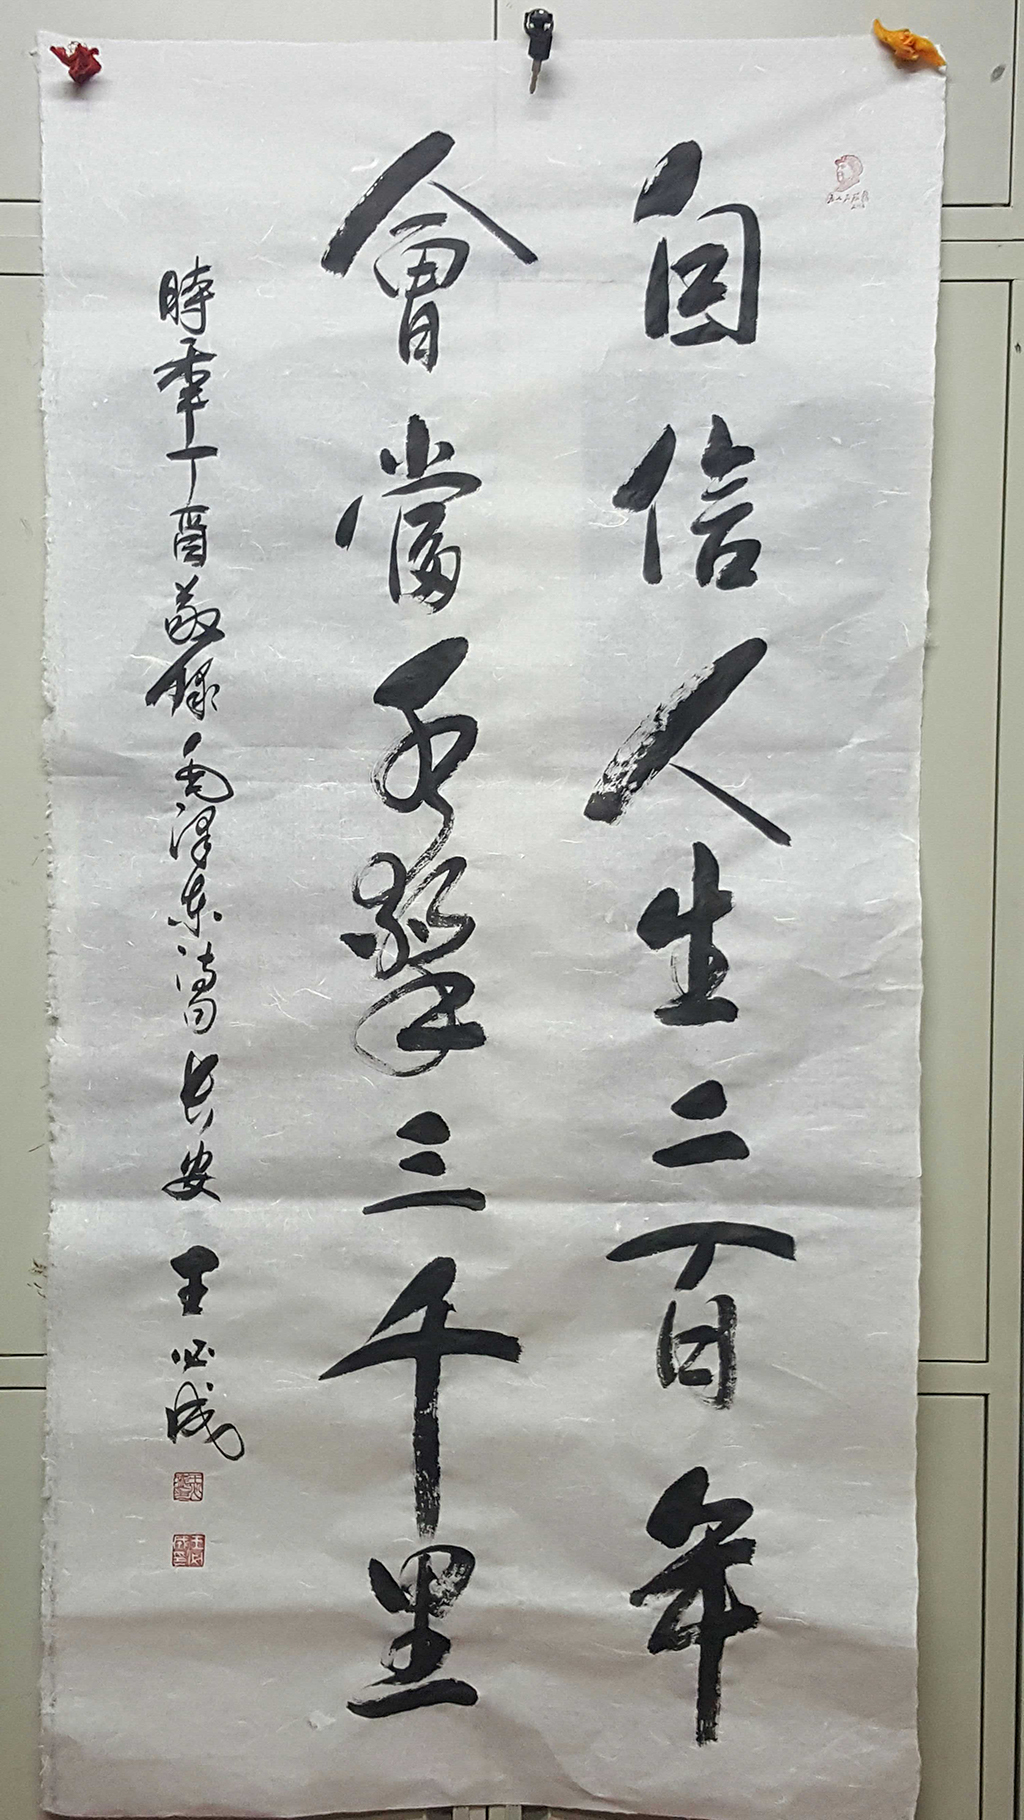 自信人生二百年
會當水擊三千里
時年丁酉敬錄毛澤东詩句长安王必成